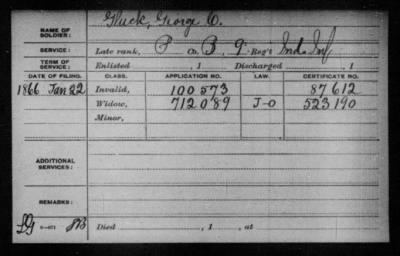 NAME OF SOLDIER: Gluck, George C.
SERVICE: Late rank, P Co. B, 9 Reg't Ind. Inf
TERM OF SERVICE: Enlisted , 1 Discharged , 1
DATE OF FILING. CLASS. APPLICATION NO. LAW. CERTIFICATE NO.
1866 Jan 22 Invalid, 100573 87612
Widow, 712089 J-O 523190
Minor,
ADDITIONAL SERVICES:
REMARKS:
Died , 1 , at